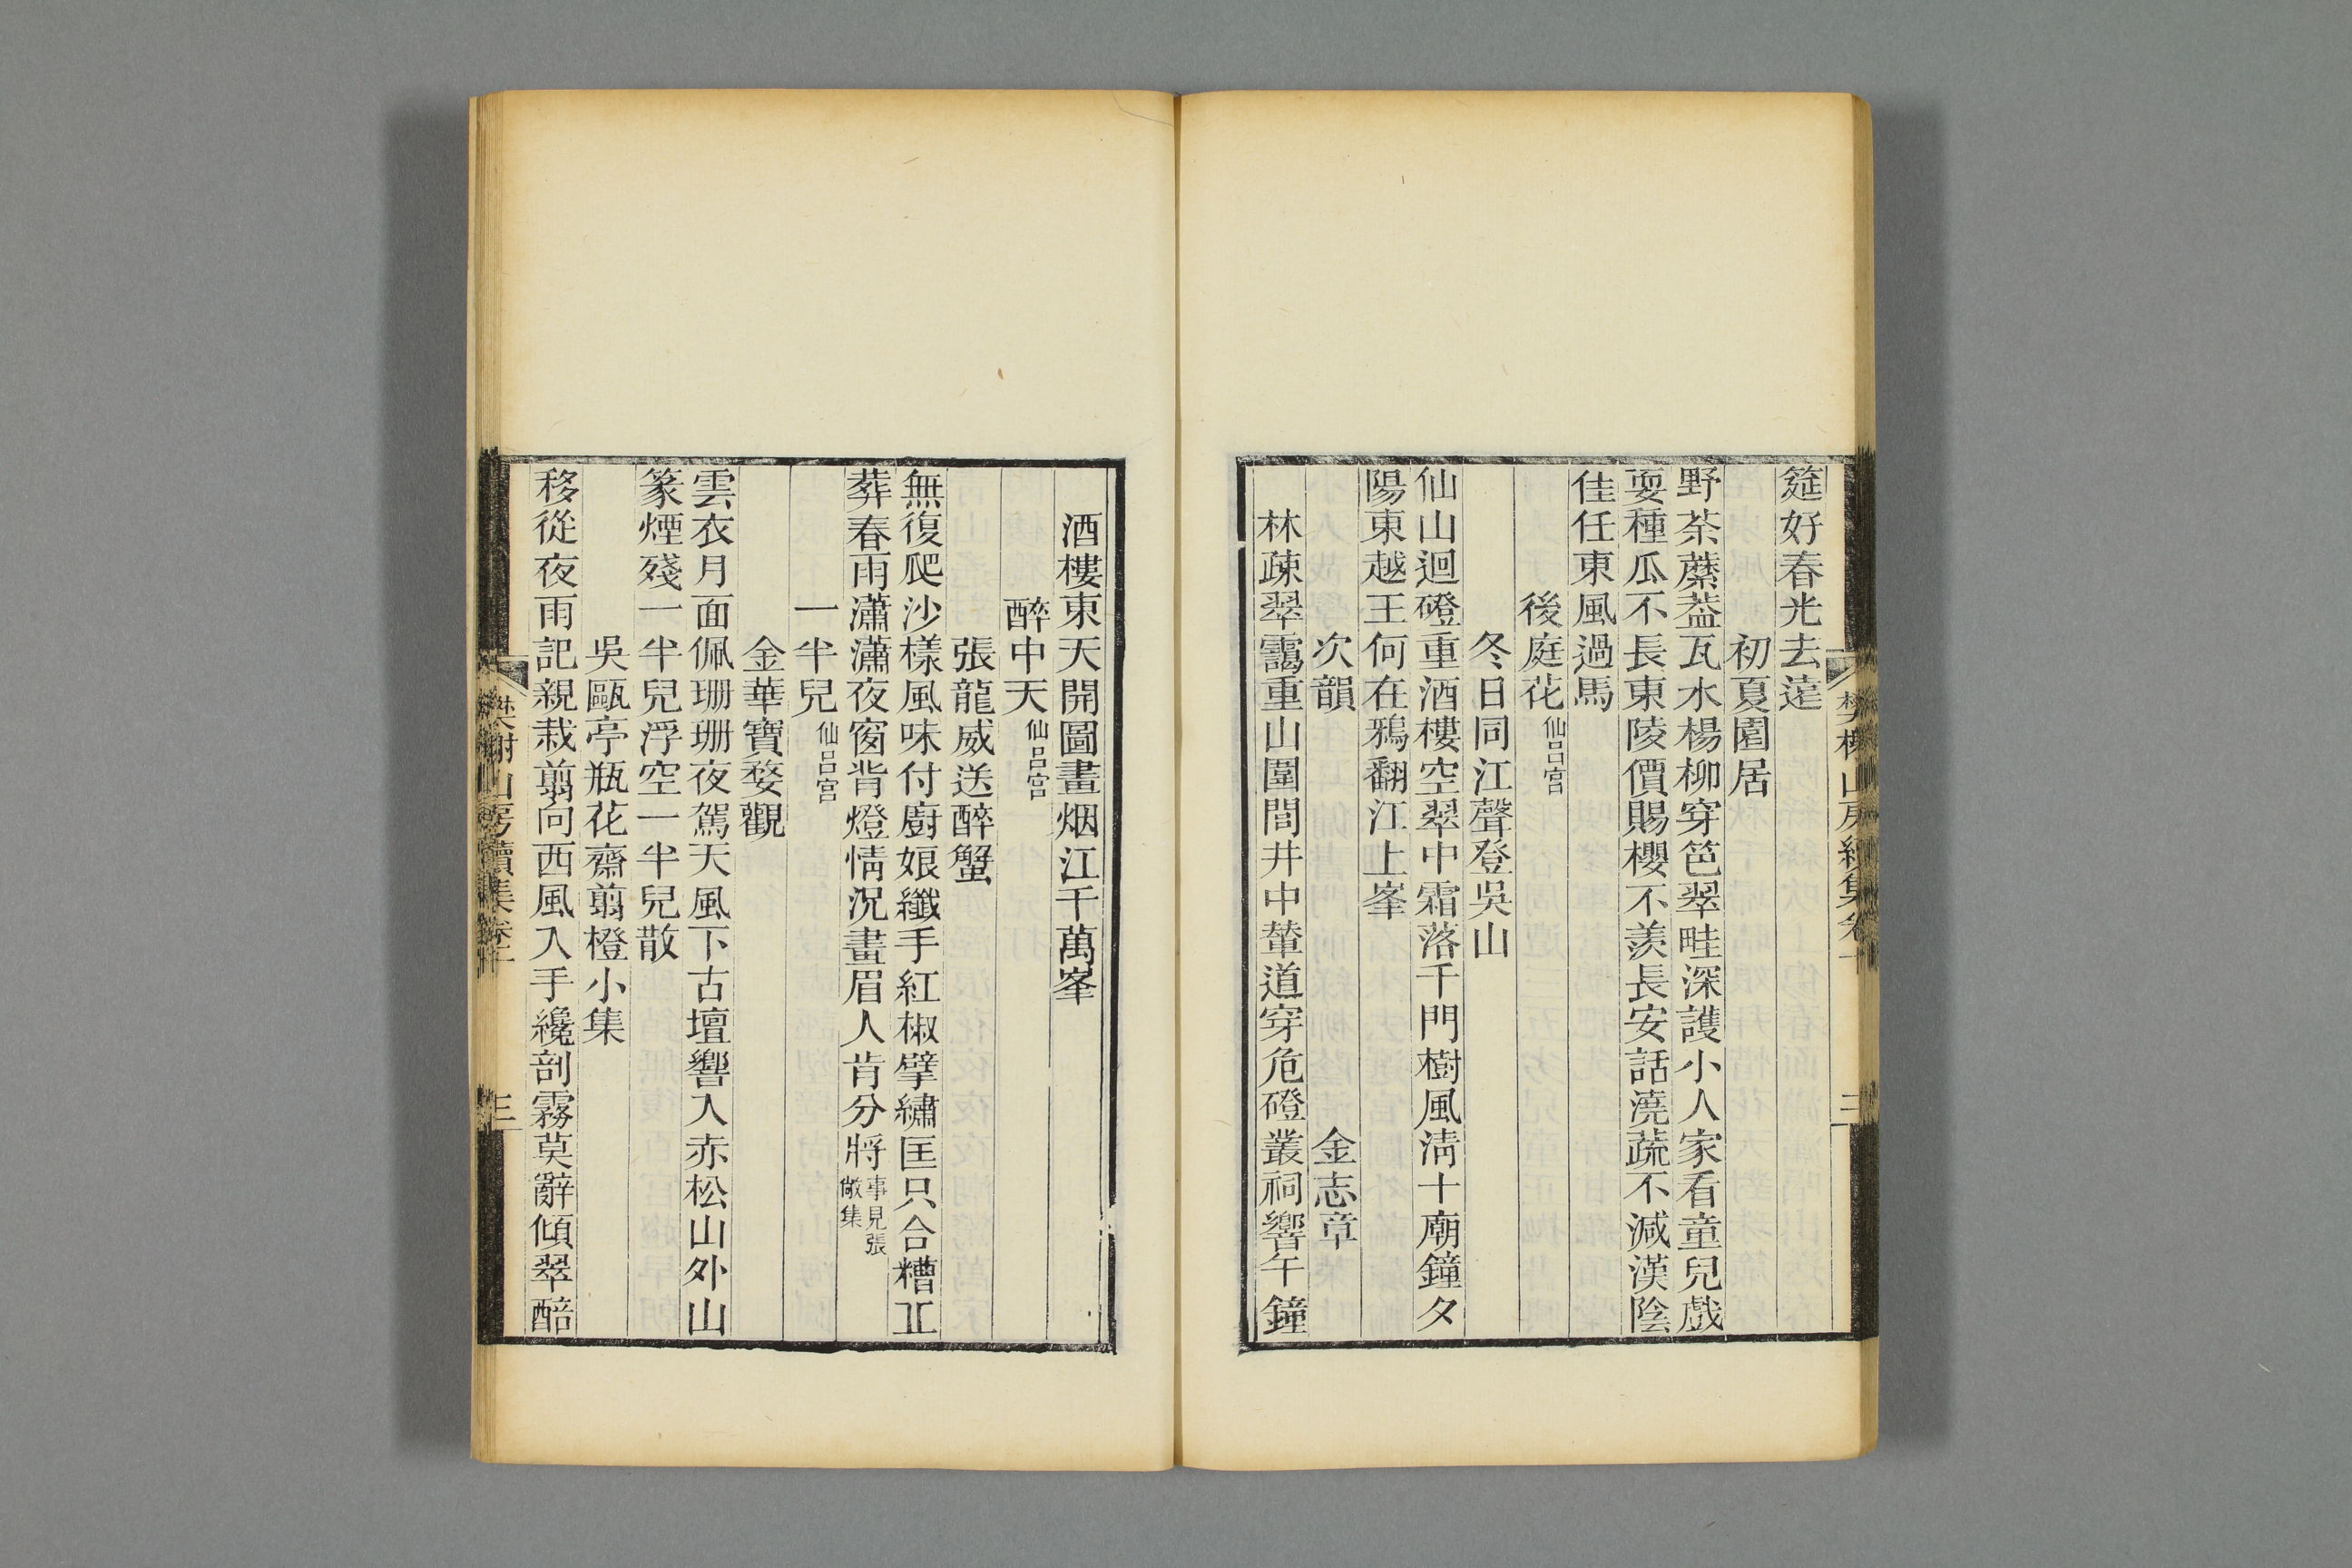 筵好春光去莚
初夏園居
野荼蘼葢瓦水楊柳穿笆翠畦深護小人家看童兒戲
耍種瓜不長東陵價賜櫻不羨長安話澆蔬不減漢陰
佳任東風過馬
後庭花仙呂宮
冬日同江聲登吳山
仙山迴磴重酒樓空翠中霜落千門樹風淸十廟鐘夕
陽東越王何在鴉翻江上峯
次韻 金志章
林疎翠靄重山圍闤井中輦道穿危磴叢祠響午鐘
樊榭山房續集卷十
三
酒樓東天開圖畫烟江千萬峯
醉中天仙呂宮
張龍威送醉蟹
無復爬沙樣風味付廚娘纖手紅椒擘繡匡只合糟丘
葬春雨瀟瀟夜窗背燈情況畫眉人肯分將事見張
敞集
一半兒仙呂宮
金華寶婺觀
雲衣月面佩珊珊夜駕天風下古壇響入赤松山外山
篆煙殘一半兒浮空一半兒散
吳甌亭瓶花齋剪橙小集
移從夜雨記親栽剪向西風入手纔剖霧莫辭傾翠醅
樊榭山房續集卷十
三